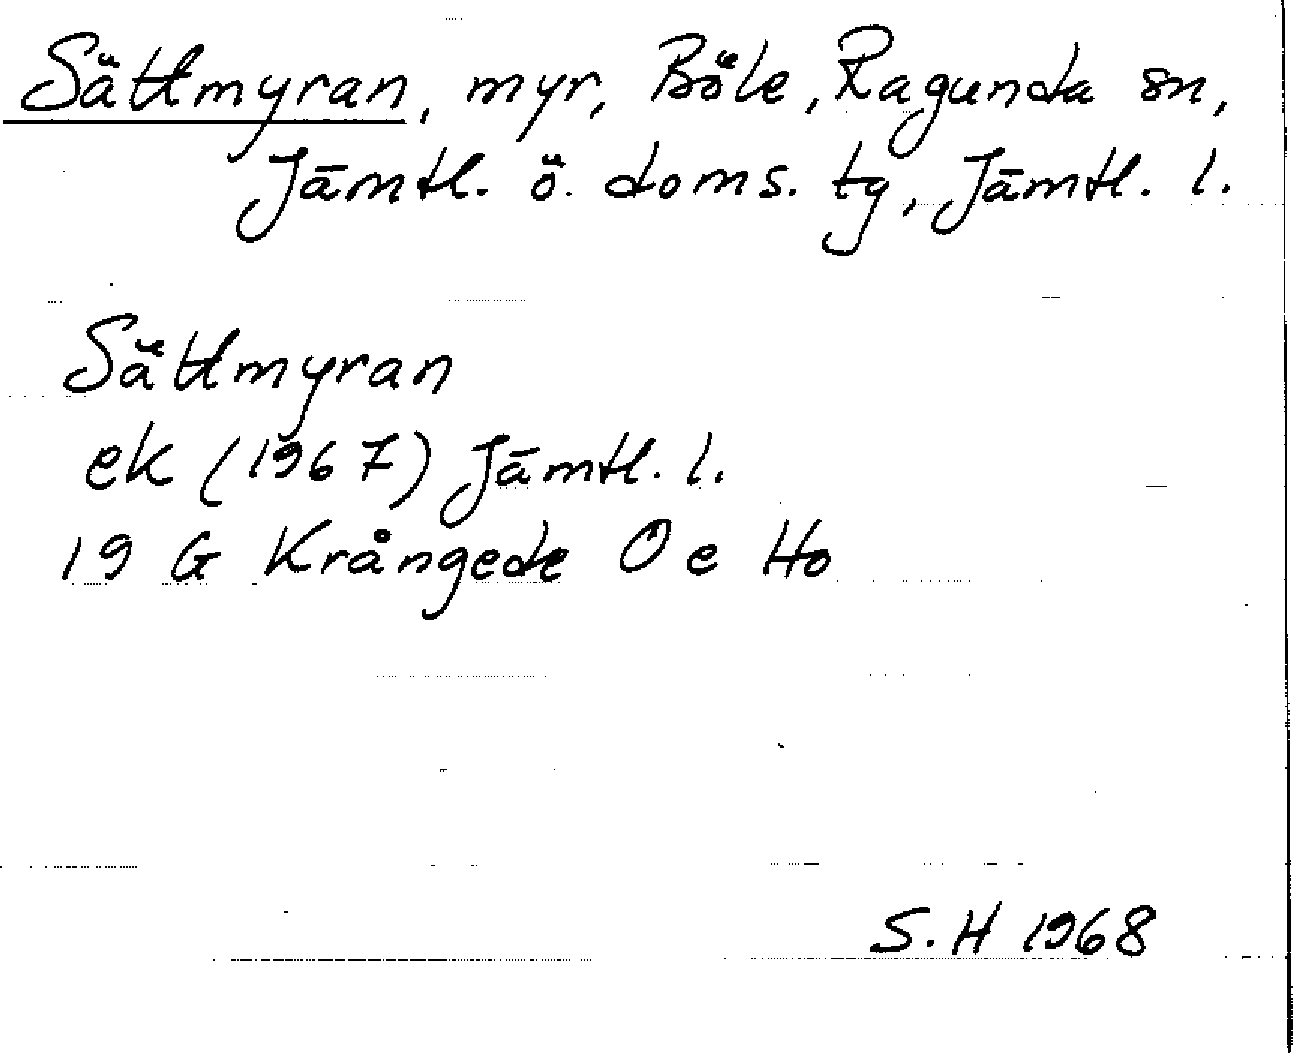 Sättmyran, myr, Böle, Ragunda sn,
Jämtl. ö. doms. tg, Jämtl. l.
Sättmyran
ek (1967) Jämtl. l.
19 G Krångede O e Ho
S. H 1968